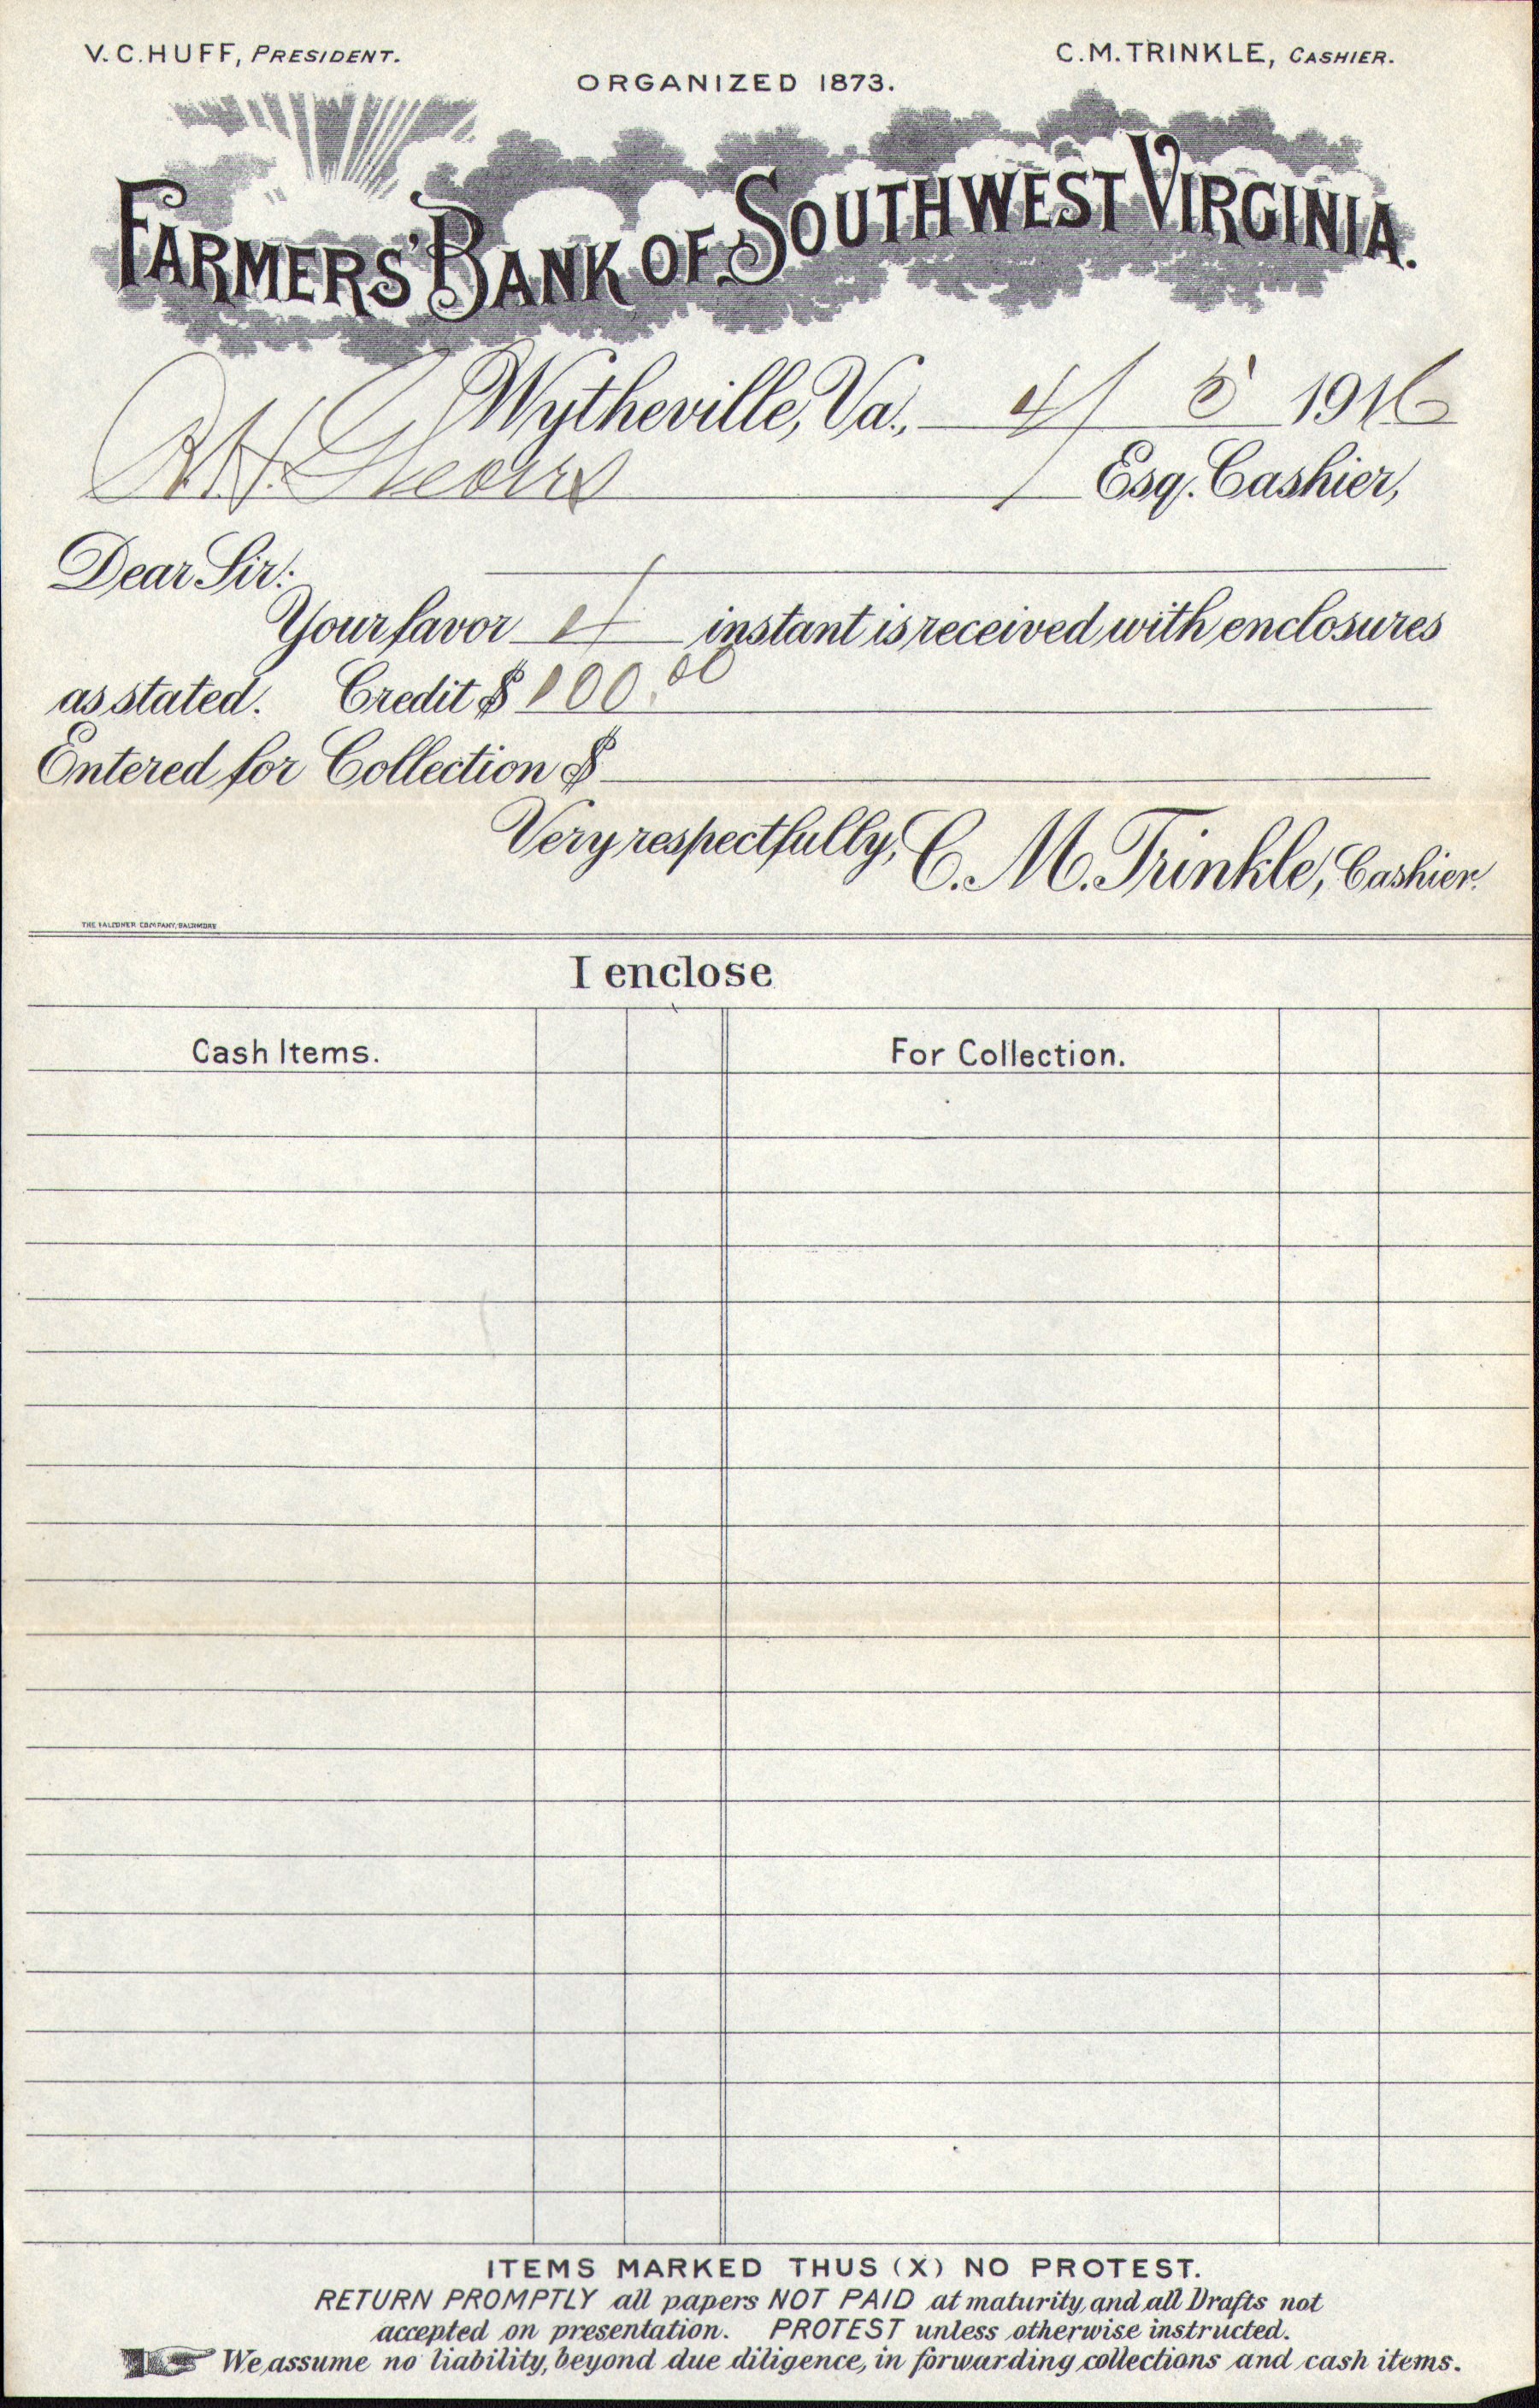 V. C. HUFF, PRESIDENT.
C. M. TRINKLE, CASHIER.
ORGANIZED 1873.
FARMERS' BANK OF SOUTHWEST VIRGINIA.
Wytheville, Va., 4/5 1916
R. H.
Esq. Cashier,
Dear Sir:
Your favor 4 instant is received with enclosures
as stated. Credit $ 100.00
Entered for Collection $
Very respectfully, C. M. Trinkle, Cashier.
THE FALCONER COMPANY, BALTIMORE
I enclose
Cash Items. For Collection.
ITEMS MARKED THUS (X) NO PROTEST.
RETURN PROMPTLY all papers NOT PAID at maturity, and all Drafts not
accepted on presentation. PROTEST unless otherwise instructed.
We assume no liability, beyond due diligence, in forwarding collections and cash items.